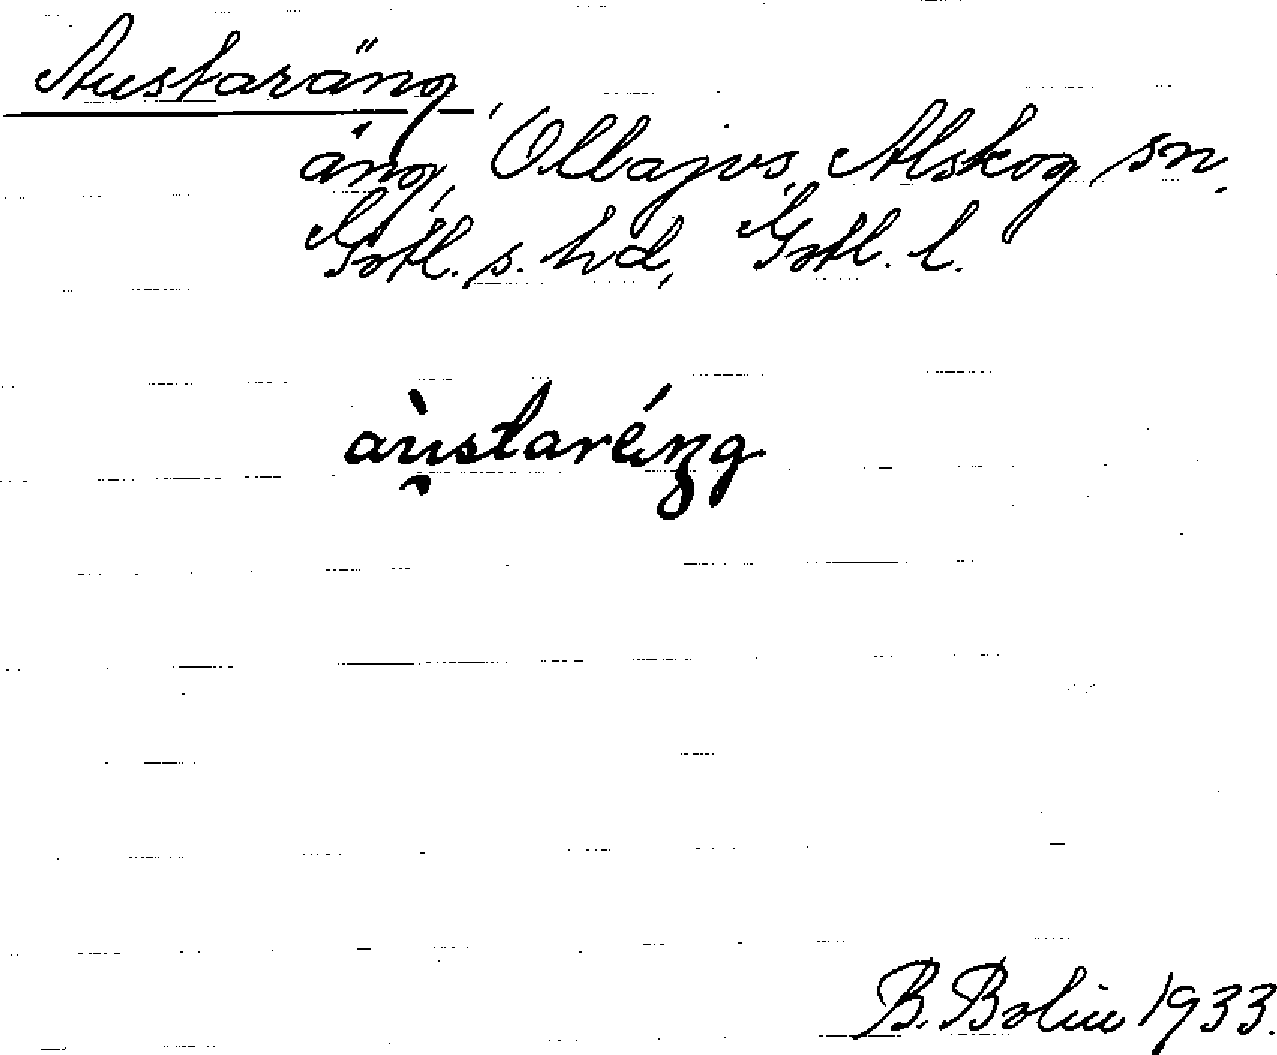 Austaräng,
äng, Ollajvs, Alskog sn.
Gotl. s. hd, Gotl. l.
àu̯staréŋg
B. Bolin 1933.